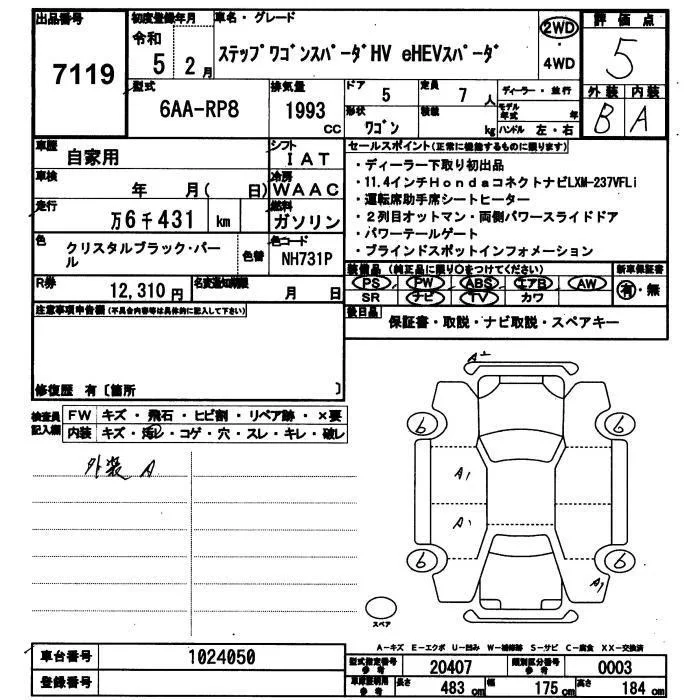 出品番号
7119
初度登録年月
令和
5 2月
車名・グレード
ステップワゴンスパーダHV eHEVスパーダ
2WD
・
4WD
評価点
5
外装 内装
B A
型式
6AA-RP8
排気量
1993
CC
ドア
5
定員
7人
形状
ワゴン
積載
kg
ディーラー・並行
モデル年式 年
ハンドル 左・右
車歴
自家用
シフト
IAT
車検
年 月( 日)
冷房
WAAC
走行
万6千431 km
燃料
ガソリン
色
クリスタルブラック・パール
色替
色コード
NH731P
R券
12,310円
名変通知期限
月 日
セールスポイント(正常に機能するものに限ります)
・ディーラー下取り初出品
・11.4インチHondaコネクトナビLXM-237VFLi
・運転席助手席シートヒーター
・2列目オットマン・両側パワースライドドア
・パワーテールゲート
・ブラインドスポットインフォメーション
装備品 (純正品に限り○をつけてください)
PS PW ABS エアB AW
SR ナビ TV カワ
新車保証書
有・無
後日品
保証書・取説・ナビ取説・スペアキー
注意事項申告欄(不具合内容等は具体的に記入して下さい)
修復歴 有〔箇所 〕
検査員記入欄
FW キズ・飛石・ヒビ割・リペア跡・×要
内装 キズ・汚レ・コゲ・穴・スレ・キレ・破レ
外装 A
A1
6 6
A1
A1
6 6
A1
スペア
A-キズ E-エクボ U-凹み W-補修跡 S-サビ C-腐食 XX-交換済
車台番号
1024050
登録番号
型式指定番号
参考
20407
類別区分番号
参考
0003
車庫証明用
参考
長さ
483 cm
幅
175 cm
高さ
184 cm